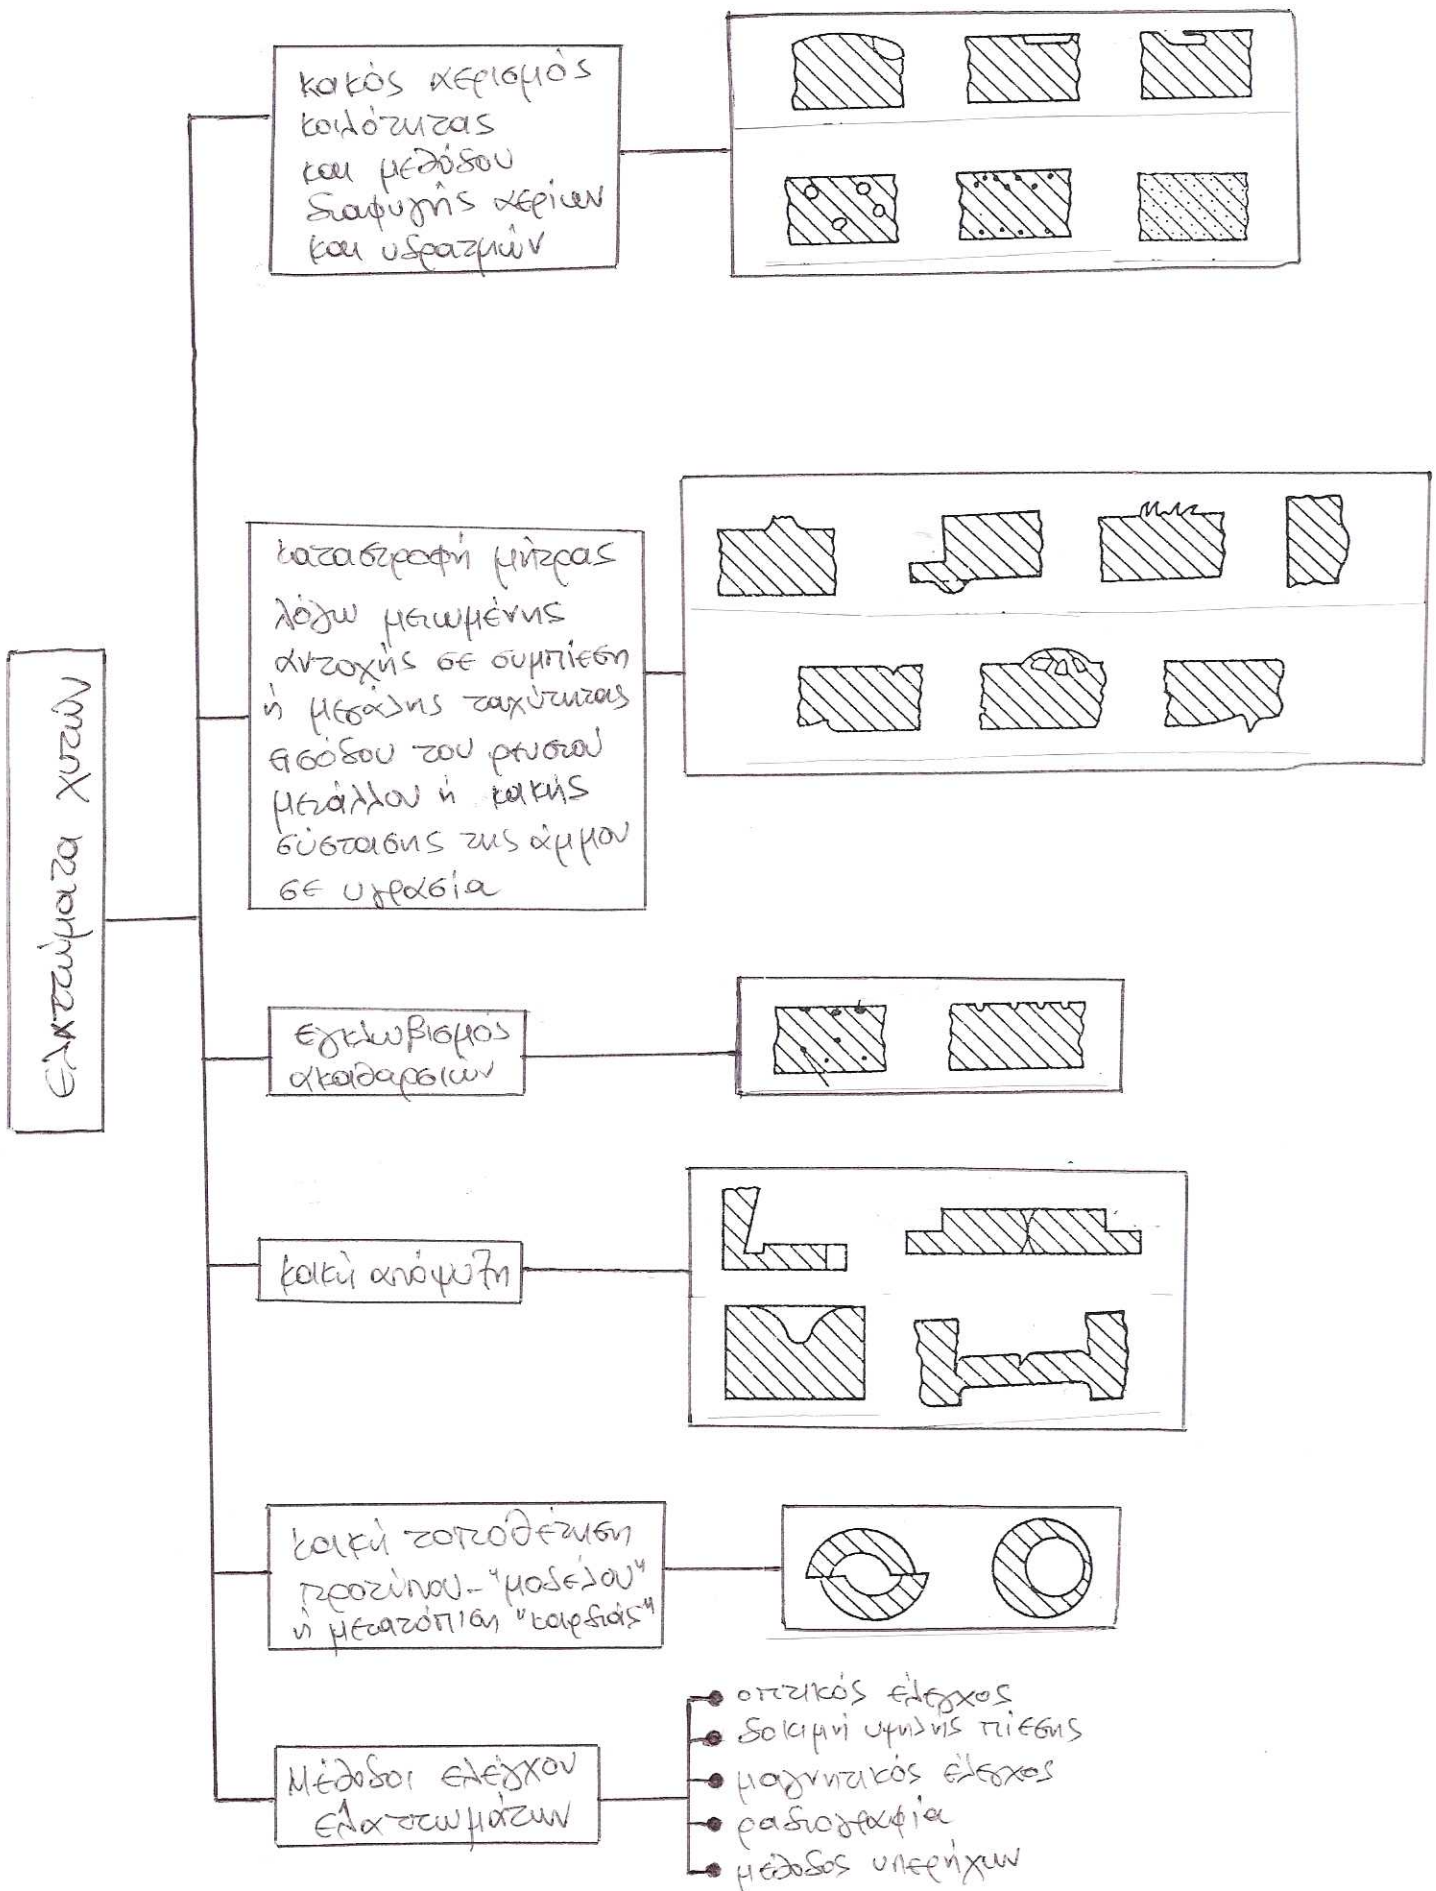 Ελαττώματα χυτών
κακός αερισμός
κοιλότητας
και μεθόδου
διαφυγής αερίων
και υδρατμών
καταστροφή μήτρας
λόγω μειωμένης
αντοχής σε συμπίεση
ή μεγάλης ταχύτητας
εισόδου του ρευστού
μετάλλου ή κακής
σύστασης της άμμου
σε υγρασία
εγκλωβισμός
ακαθαρσιών
κακή απόψυξη
κακή τοποθέτηση
προτύπου-"μοδέλου"
ή μετατόπιση "καρδιάς"
Μέθοδοι ελέγχου
ελαττωμάτων
οπτικός έλεγχος
δοκιμή υψηλής πίεσης
μαγνητικός έλεγχος
ραδιογραφία
μέθοδος υπερήχων